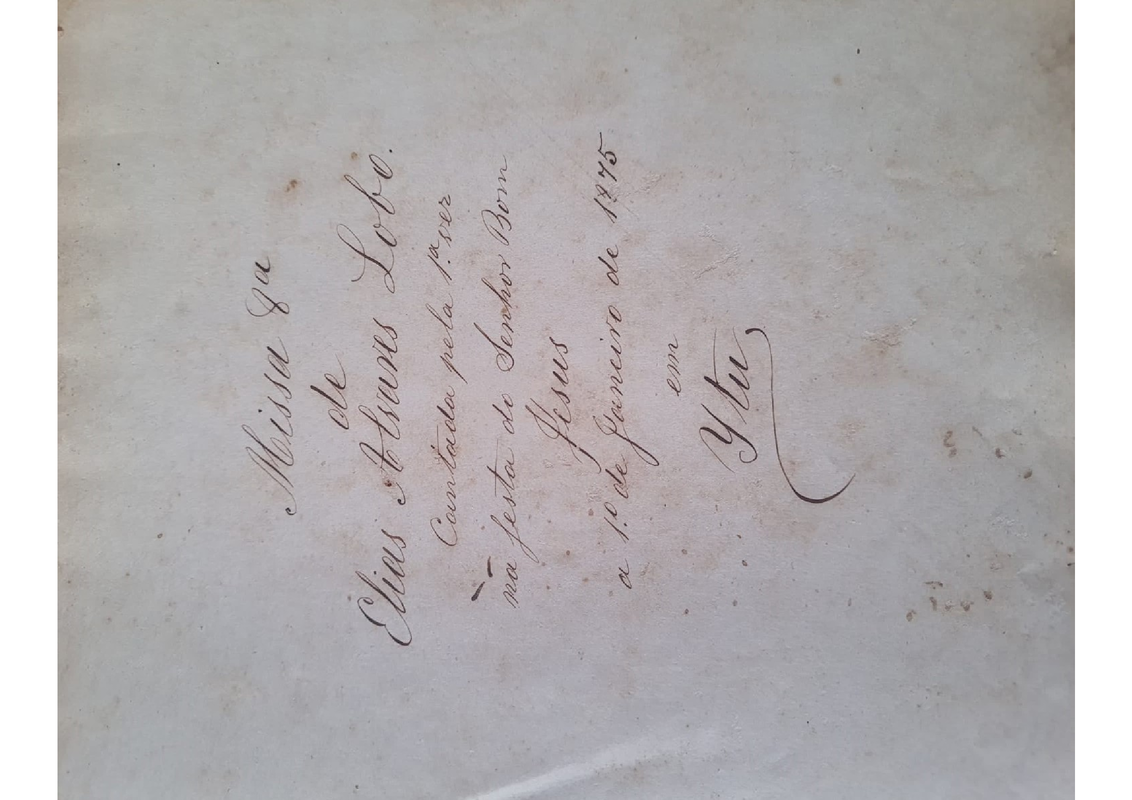 Missa 8ª
de
Elias Alvares Lobo.
Cantada pela 1.ª vez
na festa do Senhor Bom
Jesus
a 1.º de Janeiro de 1875
em
Ytu